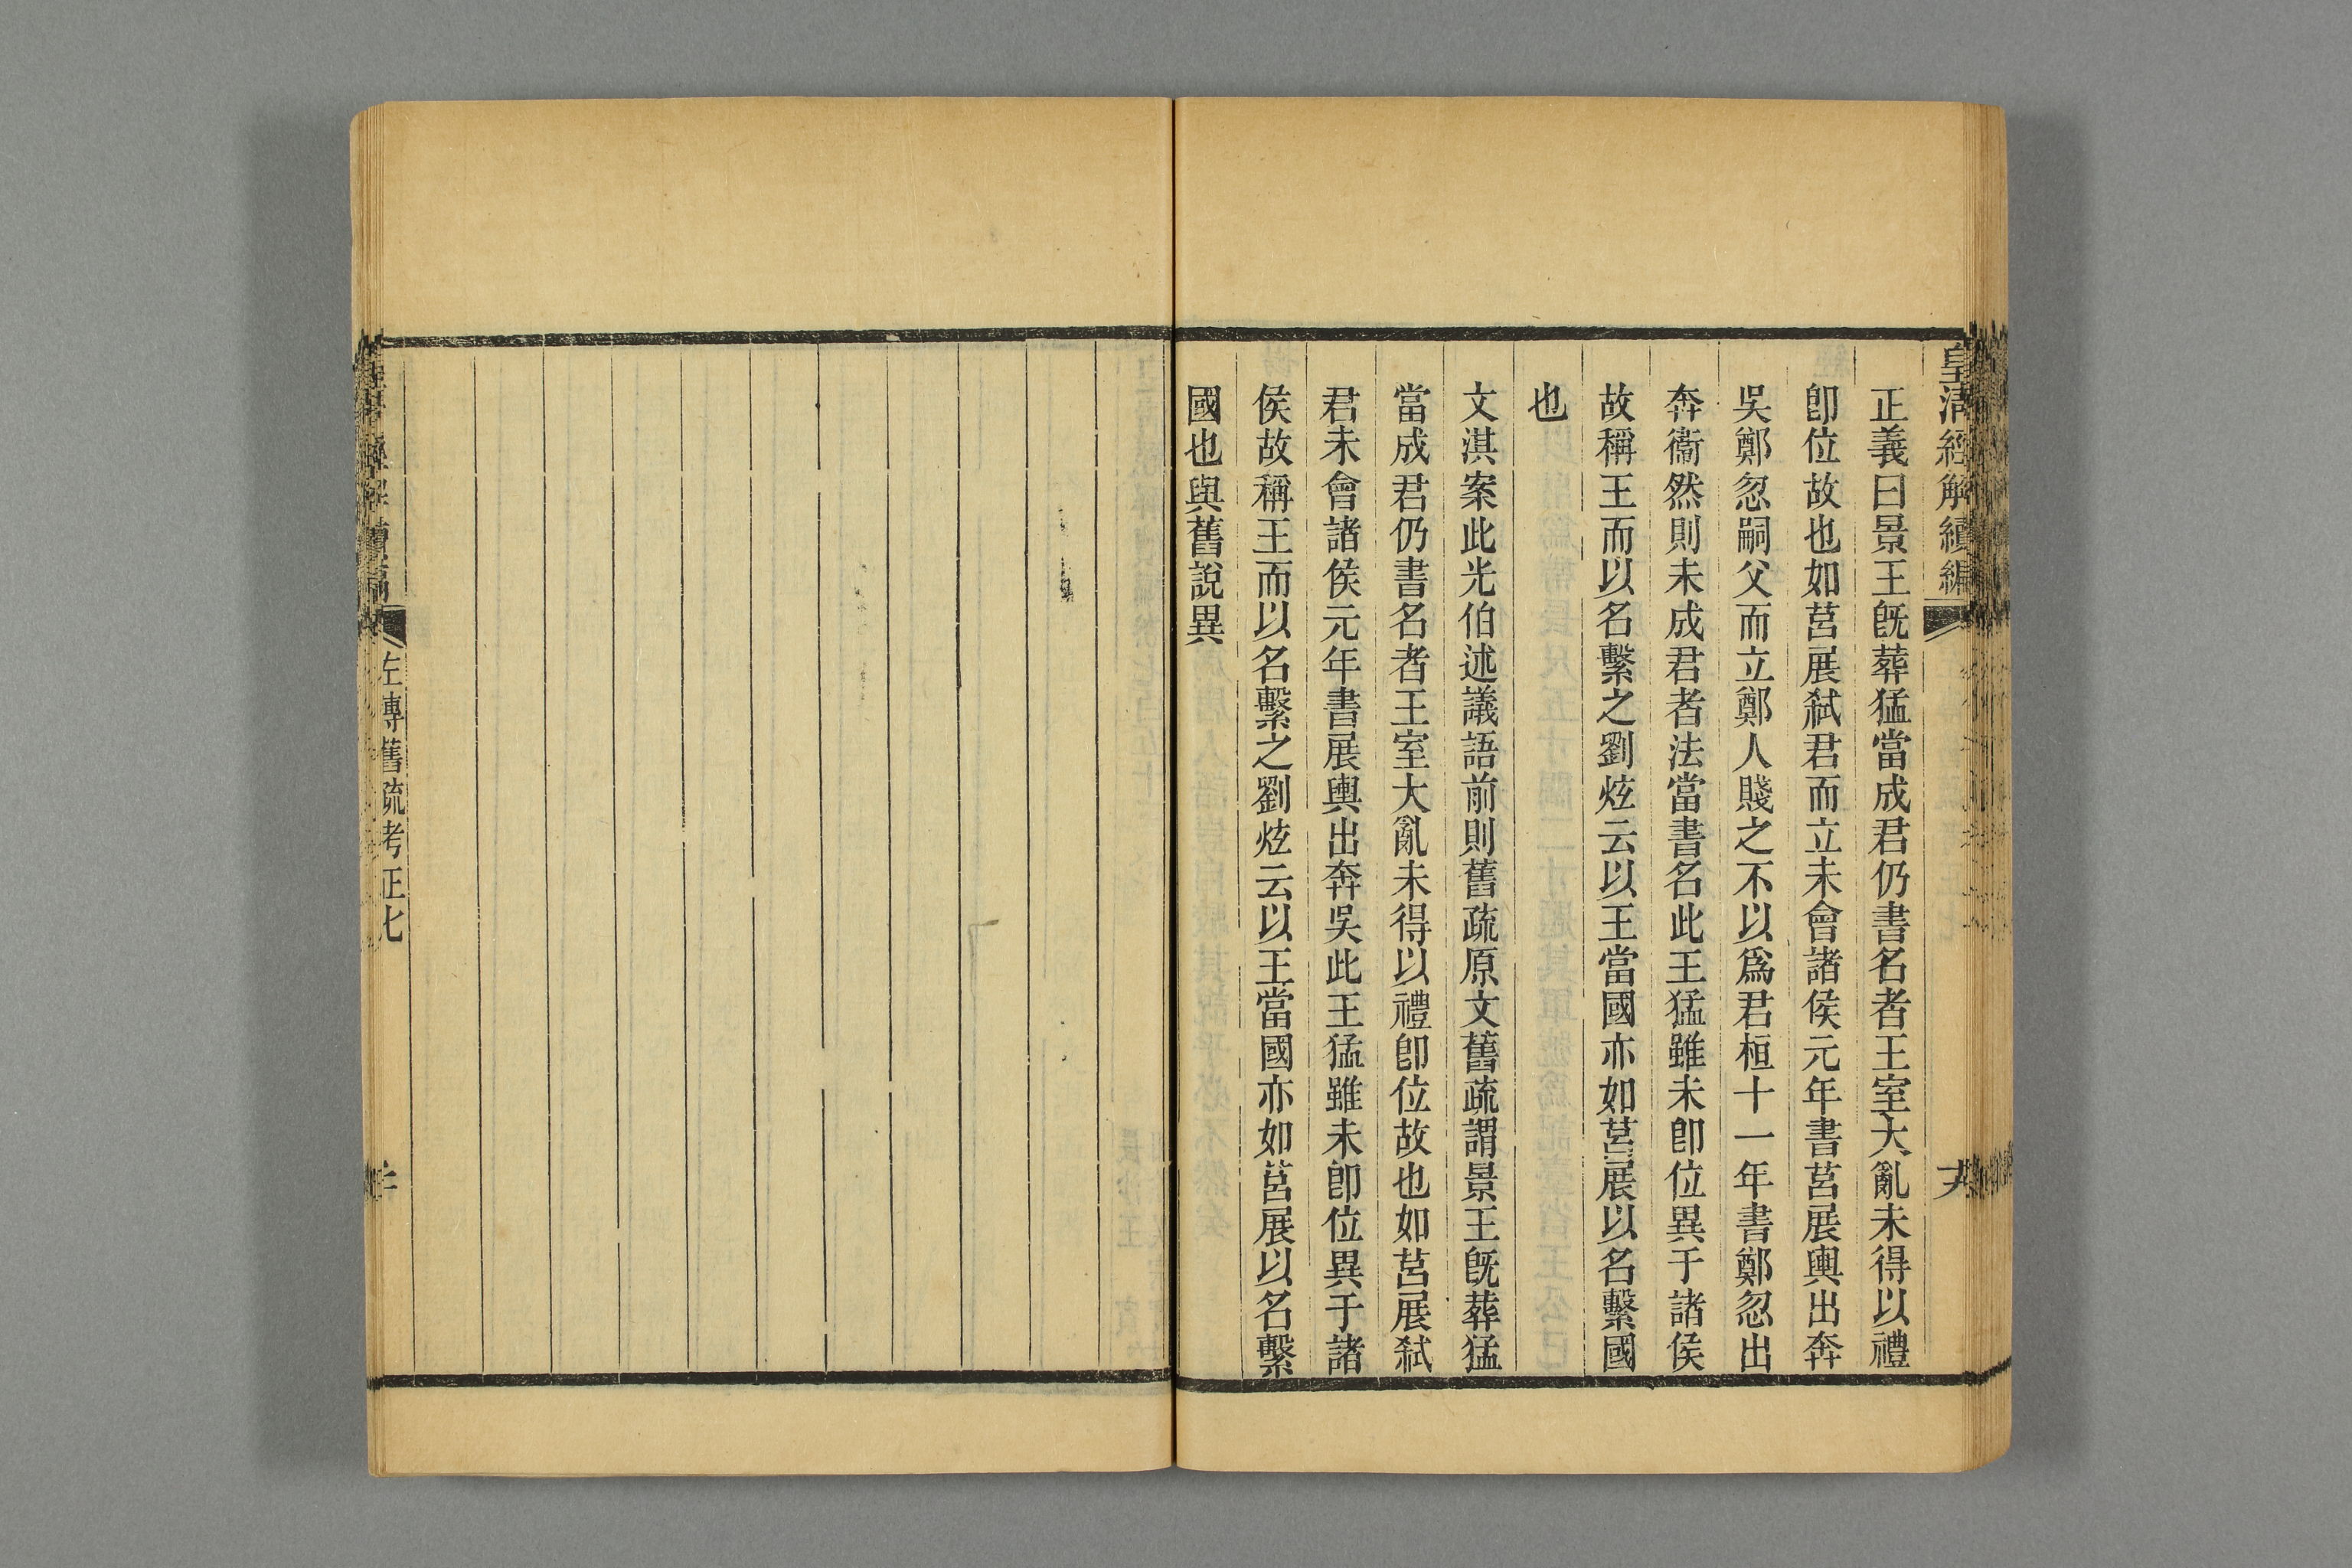 皇清經解續編
正義曰景王既葬猛當成君仍書名者王室大亂未得以禮
卽位故也如莒展弑君而立未會諸侯元年書莒展輿出奔
吳鄭忽嗣父而立鄭人賤之不以爲君桓十一年書鄭忽出
奔衞然則未成君者法當書名此王猛雖未卽位異于諸侯
故稱王而以名繫之劉炫云以王當國亦如莒展以名繫國
也
文淇案此光伯述議語前則舊疏原文舊疏謂景王既葬猛
當成君仍書名者王室大亂未得以禮卽位故也如莒展弑
君未會諸侯元年書展輿出奔吳此王猛雖未卽位異于諸
侯故稱王而以名繫之劉炫云以王當國亦如莒展以名繫
國也與舊說異
左傳舊疏考正七